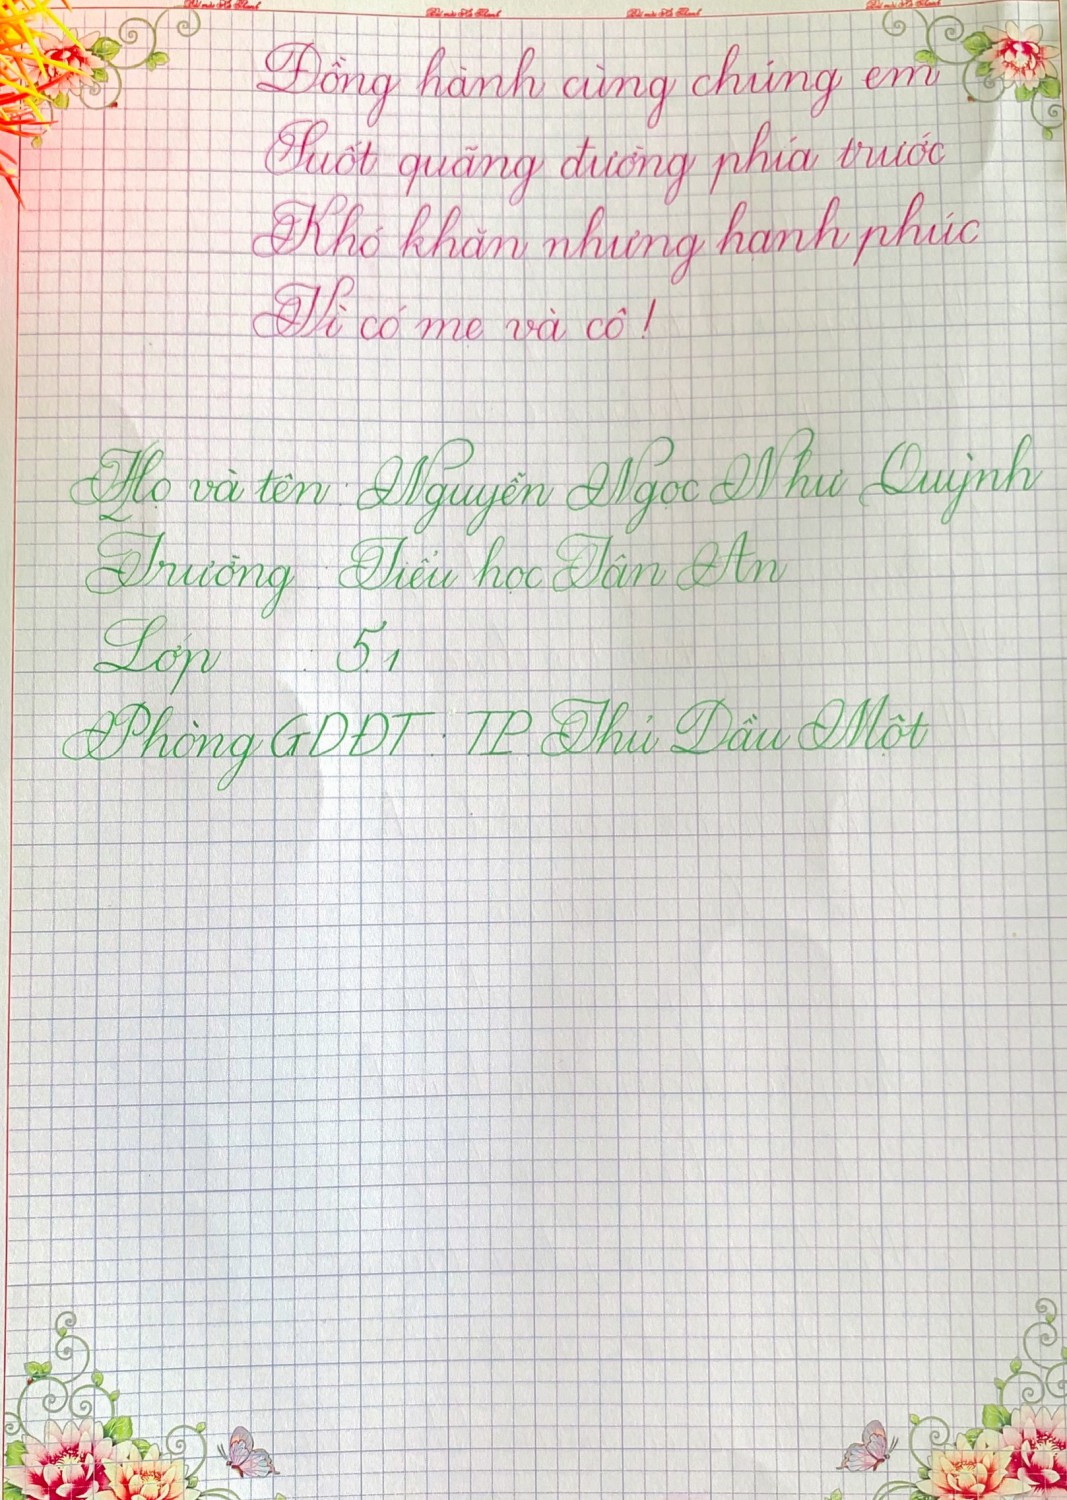 Đồng hành cùng chúng em
Suốt quãng đường phía trước
Khó khăn nhưng hạnh phúc
Vì có mẹ và cô!
Họ và tên: Nguyễn Ngọc Như Quỳnh
Trường : Tiểu học Tân An
Lớp : 5.1
Phòng GDĐT: TP. Thủ Dầu Một